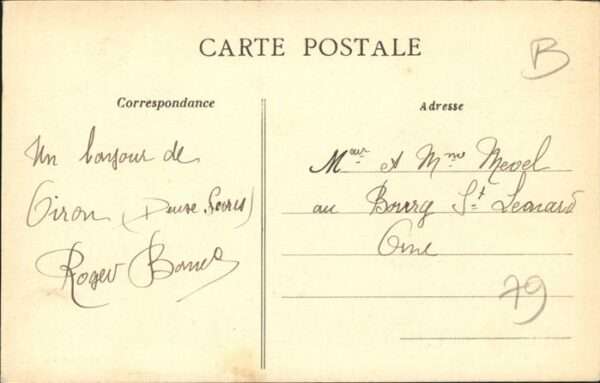 CARTE POSTALE
B
Correspondance
Un bonjour de
Oiron (Deuxe Sevres)
Roger
Adresse
Meur et Mme Mevel
au Bourg St Leonard
Orne
79